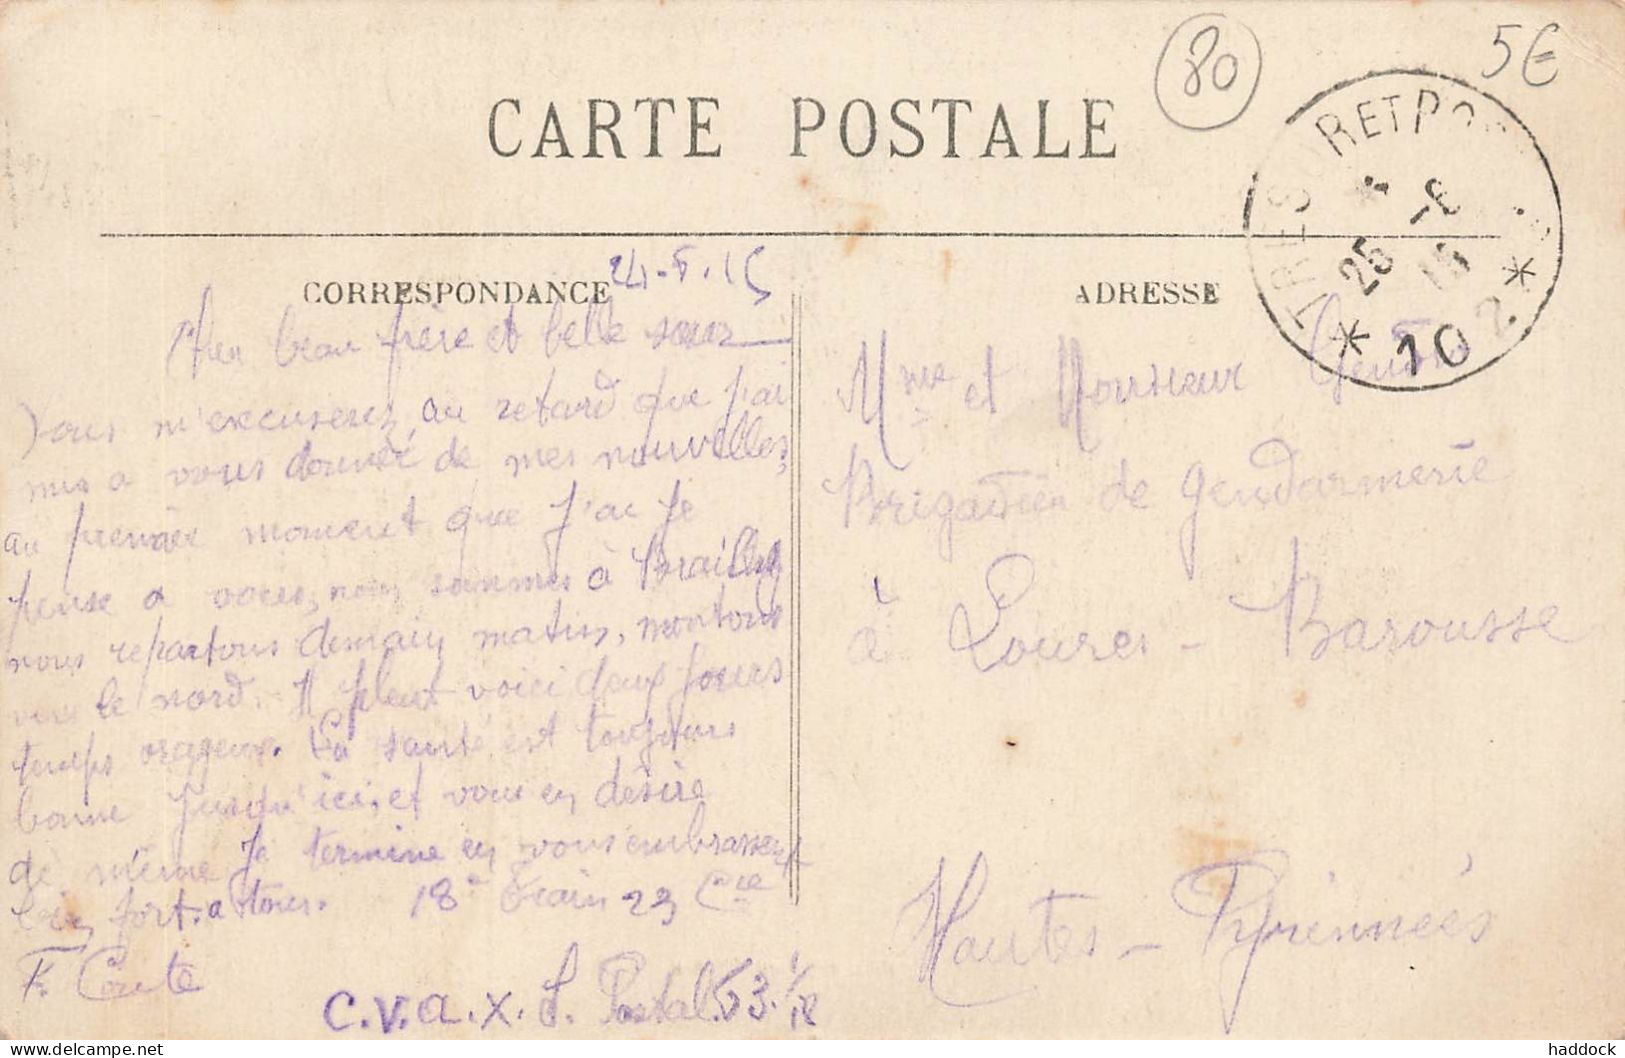 80
5€
CARTE POSTALE
TRESOR ET POSTES
4
25 -6
15
* 102 *
CORRESPONDANCE
ADRESSE
24-5.15
Cher beau frère et belle sœur
Vous m'excuserez, au retard que j'ai
mis a vous donner de mes nouvelles,
au premier moment que j'ai je
pense a vous, nous sommes à Brailly
nous repartons demain matin, montons
vers le nord. Il pleut voici deux jours
temps orageux. La santé est toujours
bonne jusqu'ici, et vous en désire
de même Je termine en vous embrassent
bien fort. a tous. 18e train 23 Cie
F. Coute
C.V.A.X. S. Postal. 53.
Mme et Monsieur
Brigadier de Gendarmerie
à Loures - Barousse
Hautes - Pyrénnées
haddock